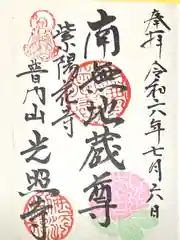 奉拝 令和六年七月六日
南無地蔵尊
紫陽花寺
普門山 光照寺